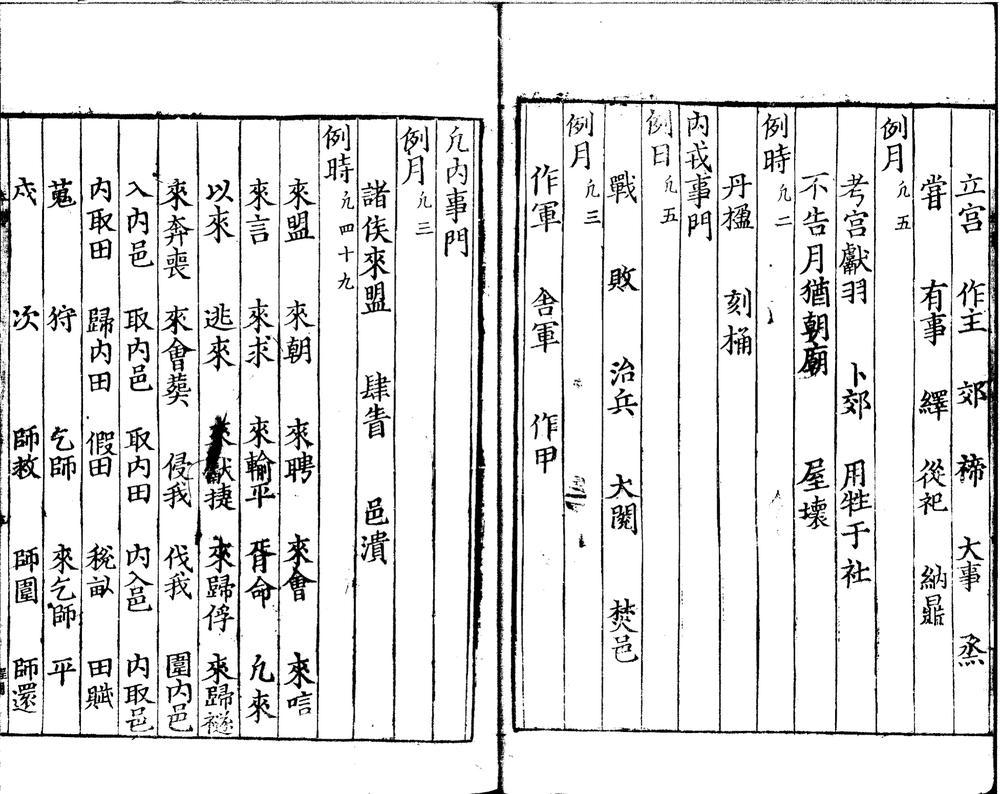 立宫 作主 郊 禘 大事 烝
甞 有事 繹 從祀 納鼎
例月 凢五
考宫獻羽 卜郊 用牲于社
不告月猶朝廟 屋壞
例時 凢二
丹楹 刻桷
内戎事門
例日 凢五
戰 敗 治兵 大閱 焚邑
例月 凢三
作軍 舍軍 作甲
凢内事門
例月 凢三
諸侯來盟 肆眚 邑潰
例時 凢四十九
來盟 來朝 來聘 來會 來唁
來言 來求 來輸平 胥命 凢來
以來 逃來 來獻捷 來歸俘 來歸襚
來奔喪 來會葬 侵我 伐我 圍内邑
入内邑 取内邑 取内田 内入邑 内取邑
内取田 歸内田 假田 稅畝 田賦
蒐 狩 乞師 來乞師 平
戍 次 師救 師圍 師還